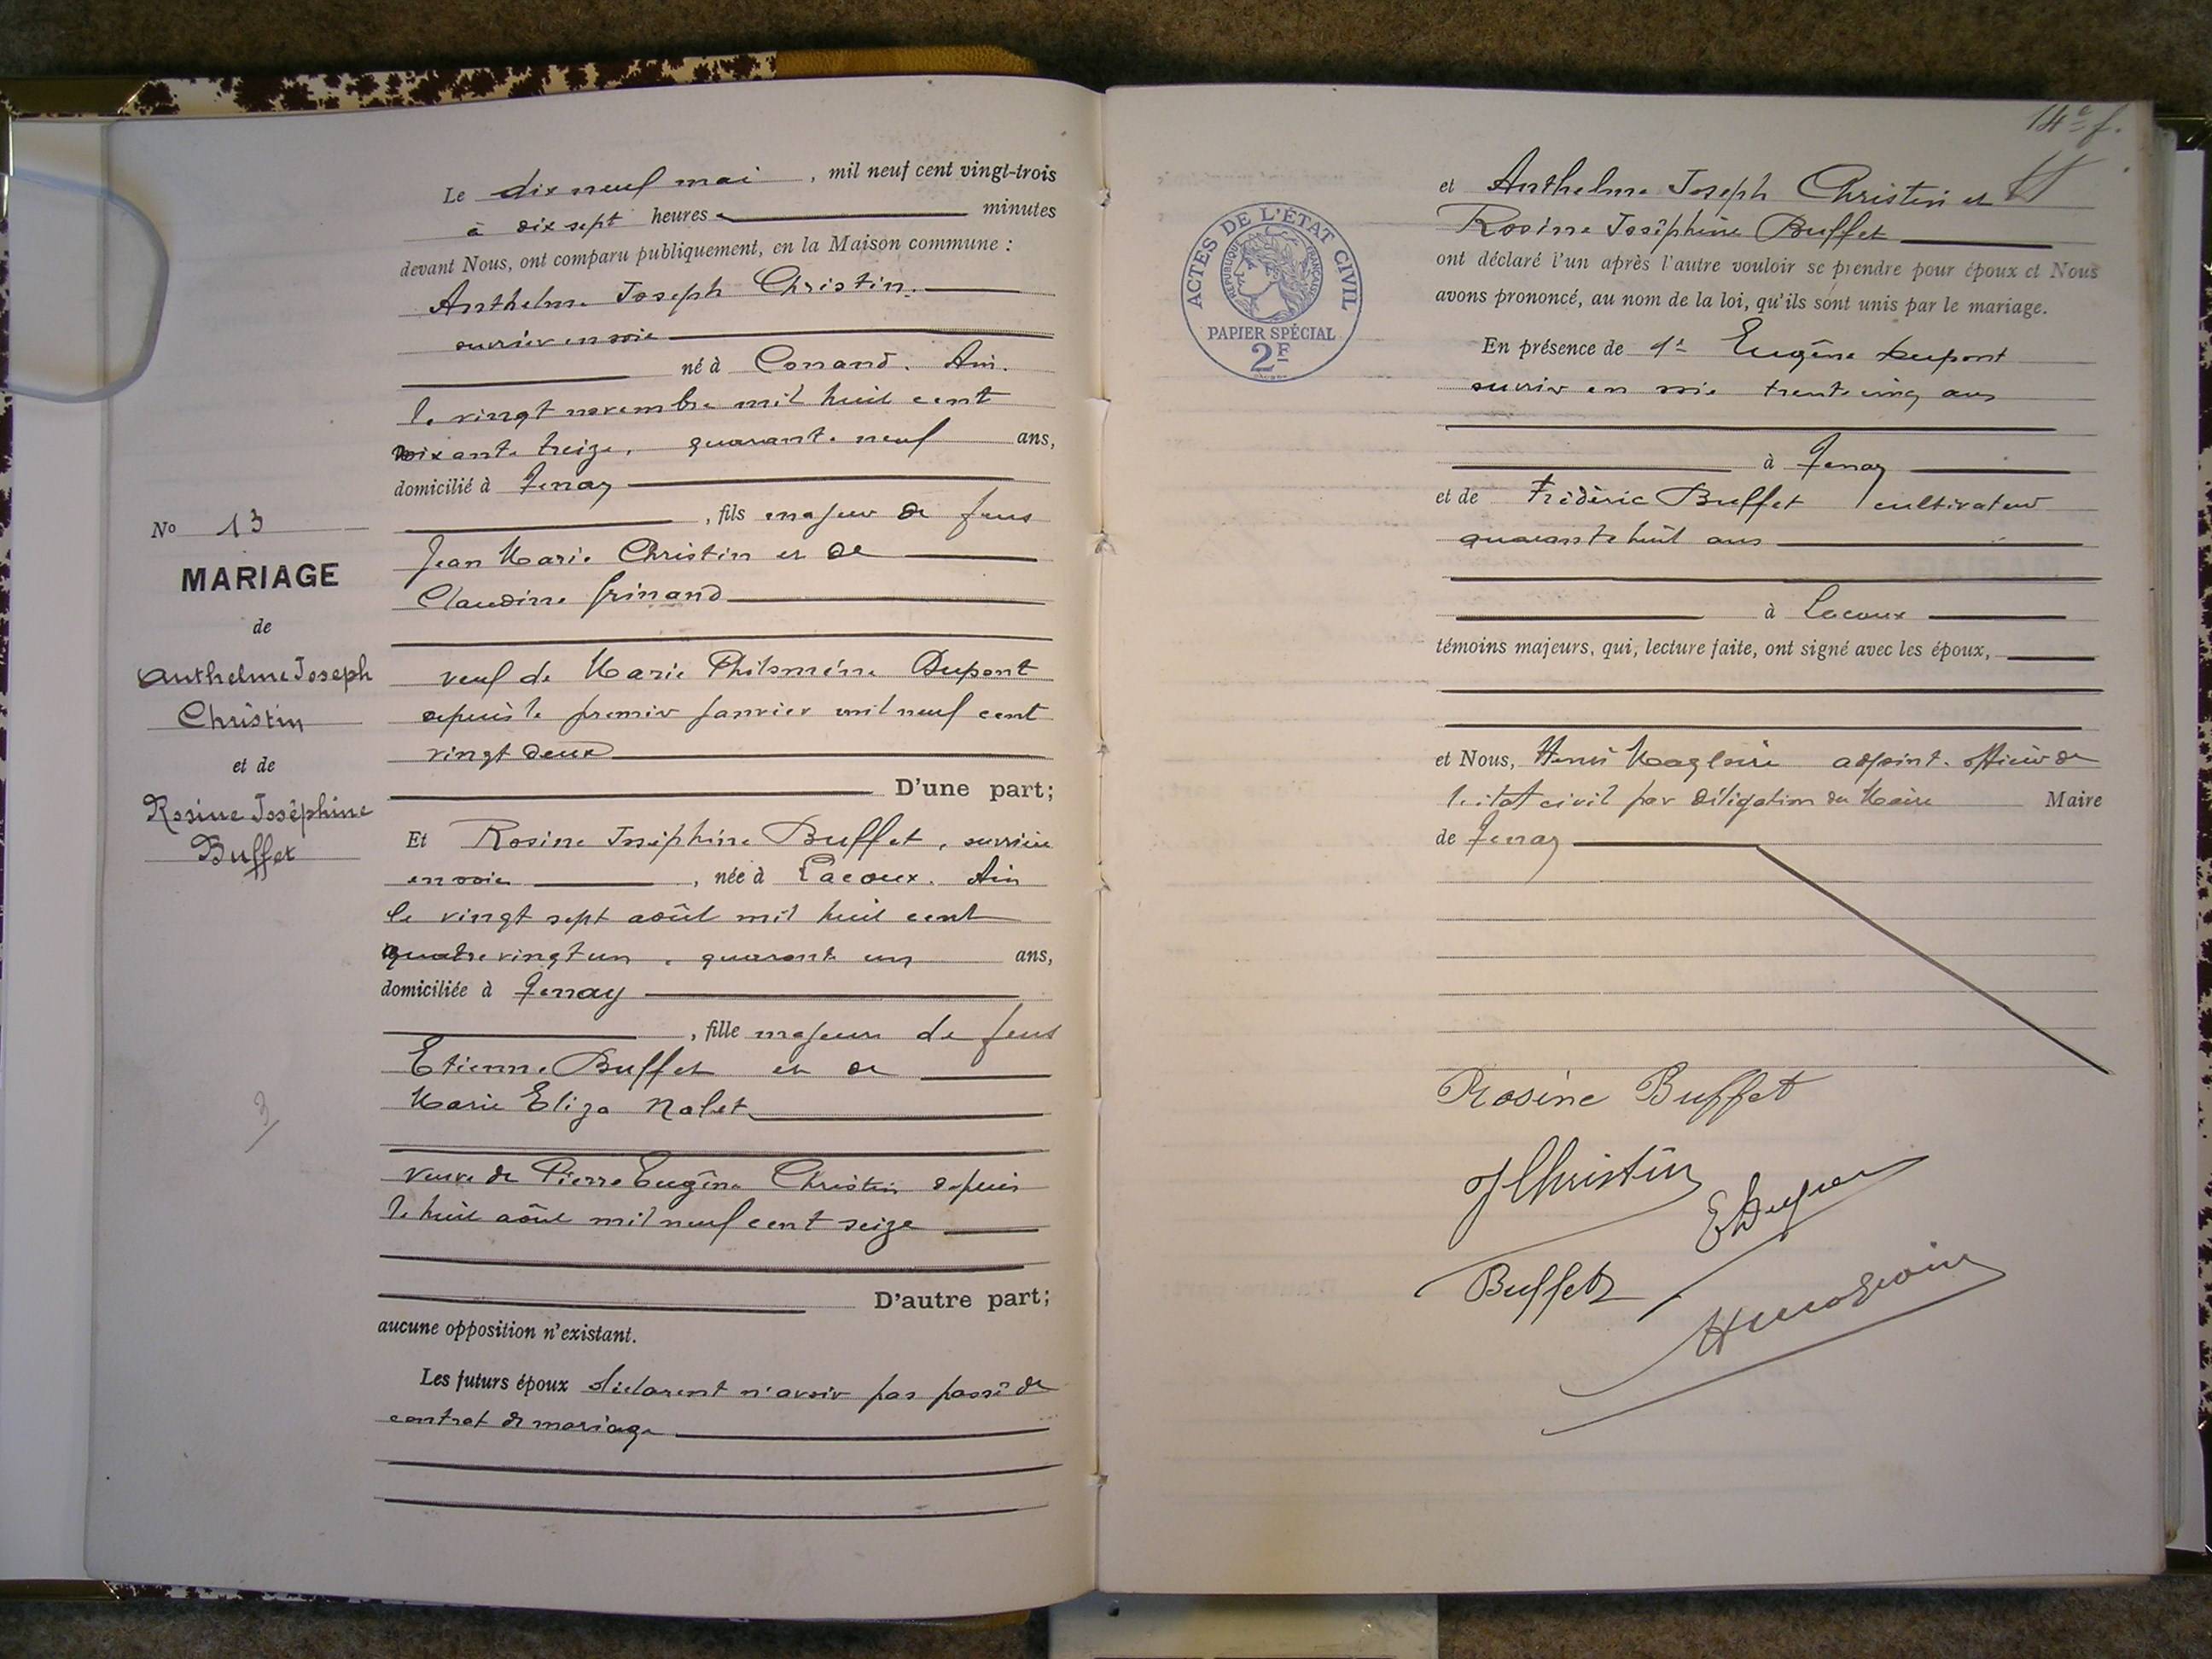 Le dix neuf mai, mil neuf cent vingt-trois
à dix sept heures minutes
devant Nous, ont comparu publiquement, en la Maison commune :
Anthelme Joseph Christin
ouvrier en soie
né à Conand. Ain.
le vingt novembre mil huit cent
soixante treize, quarante neuf ans,
domicilié à Tenay
, fils majeur de feus
Jean Marie Christin et de
Claudine Grinand
veuf de Marie Philomène Dupont
depuis le premier janvier mil neuf cent
vingt deux
D'une part;
Et Rosine Joséphine Buffet, ouvrière
en soie, née à Lacoux. Ain
le vingt sept août mil huit cent
quatre vingt un, quarante un ans,
domiciliée à Tenay
, fille majeure de feus
Etienne Buffet et de
Marie Eliza Nalet
veuve de Pierre Eugène Christin depuis
le huit août mil neuf cent seize
D'autre part;
aucune opposition n'existant.
Les futurs époux déclarent n'avoir pas passé de
contrat de mariage
No 13
MARIAGE
de
Anthelme Joseph
Christin
et de
Rosine Joséphine
Buffet
3
14e f.
ACTES DE L'ÉTAT CIVIL
RÉPUBLIQUE FRANÇAISE
PAPIER SPÉCIAL
2F
et Anthelme Joseph Christin et
Rosine Joséphine Buffet
ont déclaré l'un après l'autre vouloir se prendre pour époux et Nous
avons prononcé, au nom de la loi, qu'ils sont unis par le mariage.
En présence de 1° Eugène Dupont
ouvrier en soie trente cinq ans
à Tenay
et de Frédéric Buffet cultivateur
quarante huit ans
à Lacoux
témoins majeurs, qui, lecture faite, ont signé avec les époux,
et Nous, Henri Magloire adjoint. officier de
l'état civil par délégation du Maire Maire
de Tenay
Rosine Buffet
J Christin
E Dupont
Buffet
H Magloire